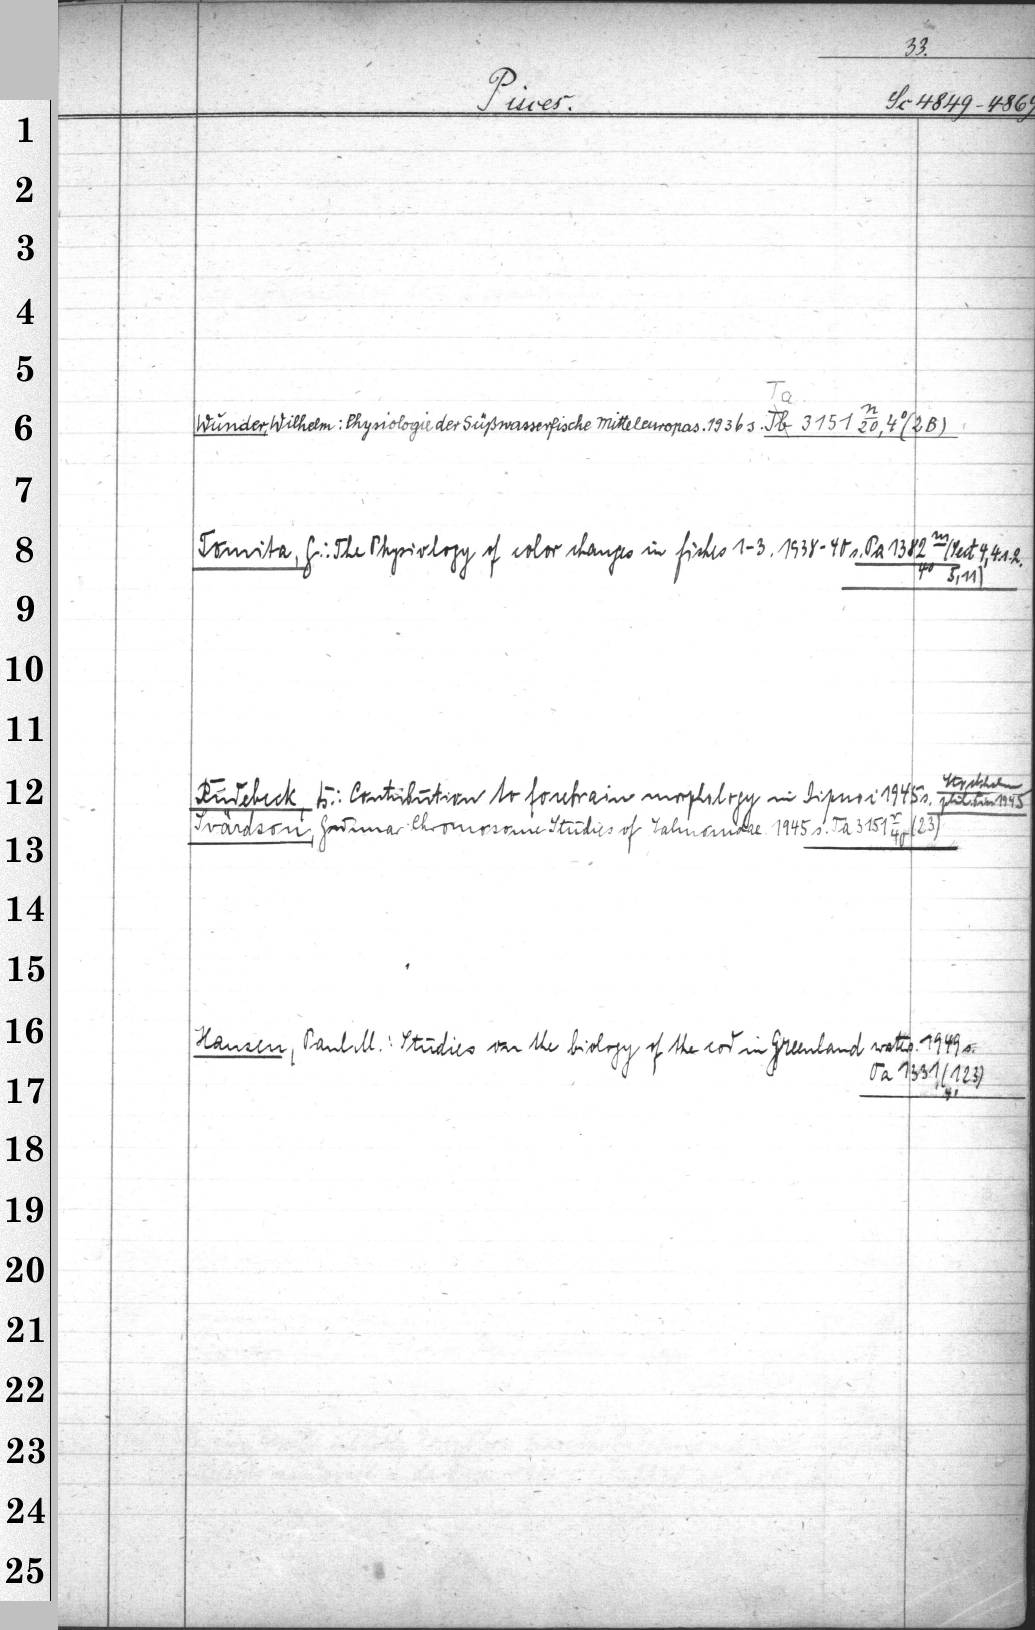 33.
Pisces.
Sc 4849-4869
1
2
3
4
5
Ta
6 Wunder, Wilhelm: Physiologie der Süßwasserfische Mitteleuropas. 1936 s. Tb 3151 n/20, 4° (2B)
7
8 Tomita, G.: The Physiology of color changes in fishes 1-3. 1938-40 s. Pa 1382 m (Sect 4, 4.1.2.
4° 5,11)
9
10
11
12 Rudebeck, G.: Contribution to forebrain morphology in Dipnoi 1945 s. Stockholm
phil. Diss 1945
Svärdson, Gunnar Chromosome Studies of Salmonidae. 1945 s. Ta 3151 n/4° (23)
13
14
15
16 Hansen, Paul M.: Studies on the biology of the cod in Greenland waters. 1949 s.
17 Pa 1331 (123)
4°
18
19
20
21
22
23
24
25